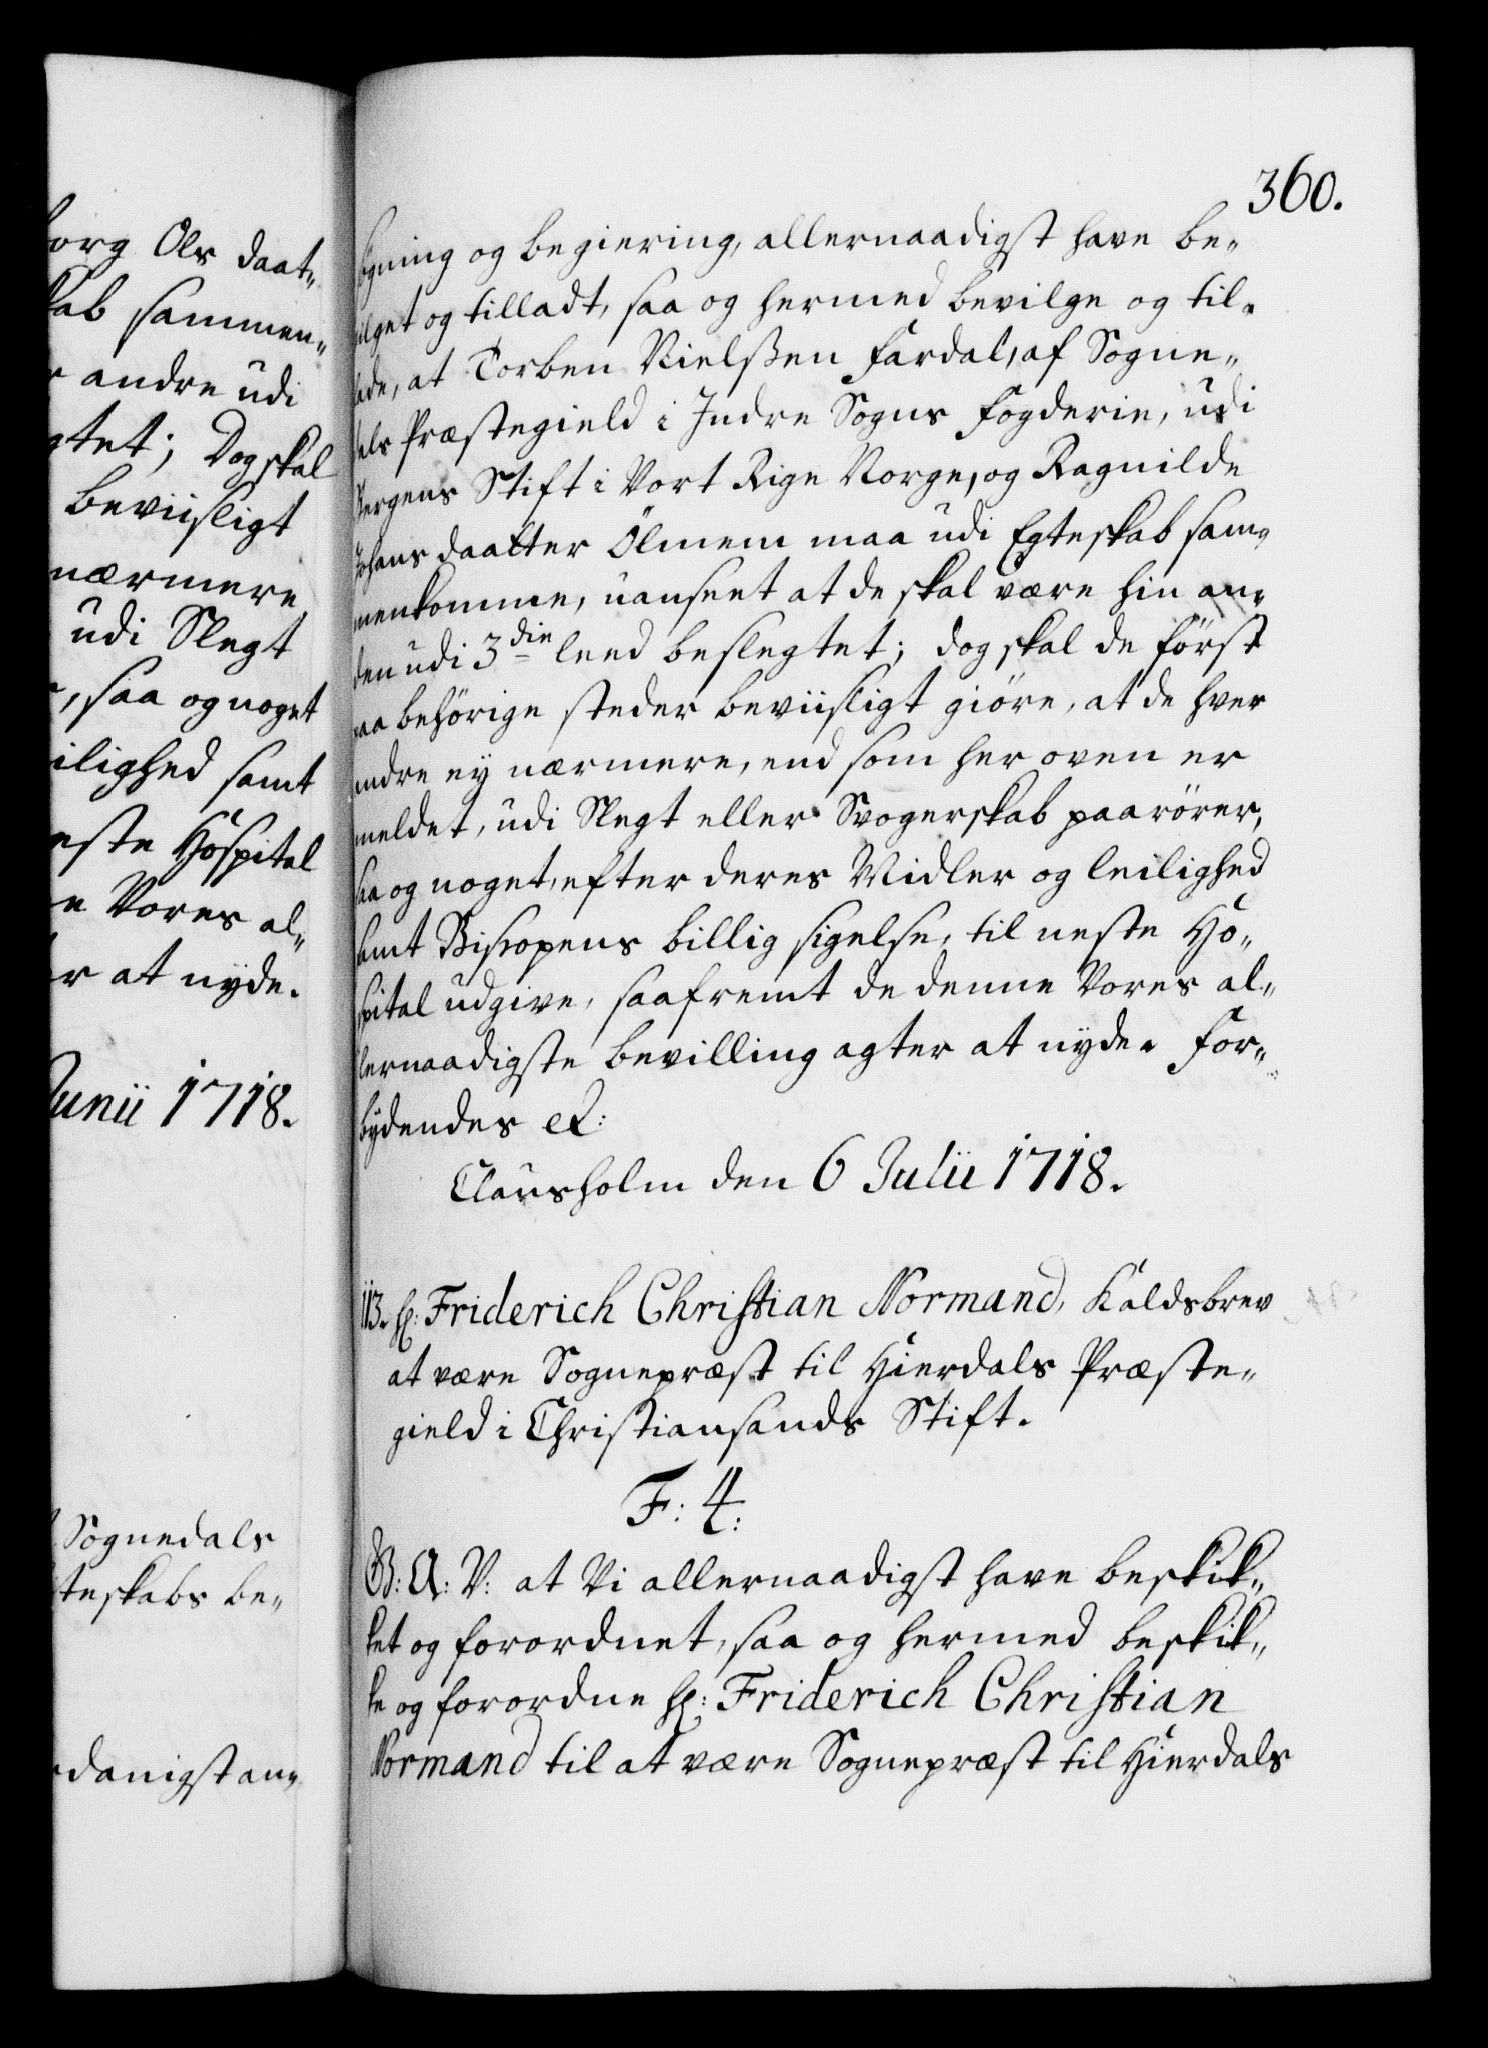 borg Ols daat„
kab sammen„
andre udi
gtet; Dog skal
beviisligt
nærmere
udi Slegt
saa og noget
ilighed samt
este Hospital
e Vores al„
r at nyde.
Junii 1718.
Sognedals
teskabs be„
danigst an„
360.
søgning og begiering, allernaadigst have be„
vilget og tilladt, saa og hermed bevilge og til„
lade, at Torben Nielßen Fardal, af Sogne„
dals Præstegield i Indre Sogns Fogderie, udi
Bergens Stift i Vort Rige Norge, og Ragnilde
Johans daatter Ölmem maa udi Egteskab sam„
menkomme, uanseet at de skal være hin an„
den udi 3die leed beslegtet; dog skal de först
paa behörige steder beviisligt giöre, at de hver
andre ey nærmere, end som her oven er
meldet, udi Slegt eller Svogerskab paarörer,
saa og noget, efter deres Midler og leilighed
samt Bispens billig sigelse, til neste Ho„
spital udgive, saafremt de denne Vores al„
lernaadigste bevilling agter at nyde. For„
bydendes etc:
Clausholm den 6 Julii 1718.
113. Hr: Friderich Christian Normand, Kaldsbrev
at være Sognepræst til Hierdals Præste„
gield i Christiansands Stift.
F: 4:
G: A: V: at Vi allernaadigst have beskik„
ket og forordnet, saa og hermed beskik„
ke og forordne Hr: Friderich Christian
Normand til at være Sognepræst til Hierdals